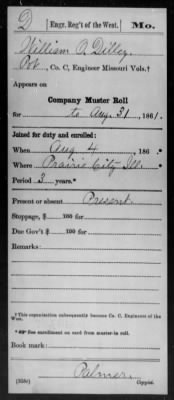 D | Engr. Reg't of the West. | Mo.
William P. Dilley
Pvt, Co. C, Engineer Missouri Vols.†
Appears on
Company Muster Roll
for to Aug. 31, 1861.
Joined for duty and enrolled:
When Aug 4, 186 .*
Where Prairie City Ill. *
Period 3 years.*
Present or absent Present
Stoppage, $ 100 for
Due Gov't $ 100 for
Remarks:
† This organization subsequently became Co. C, Engineers of the West.
* See enrollment on card from muster-in roll.
Book mark:
Palmer
(358c) Copyist.